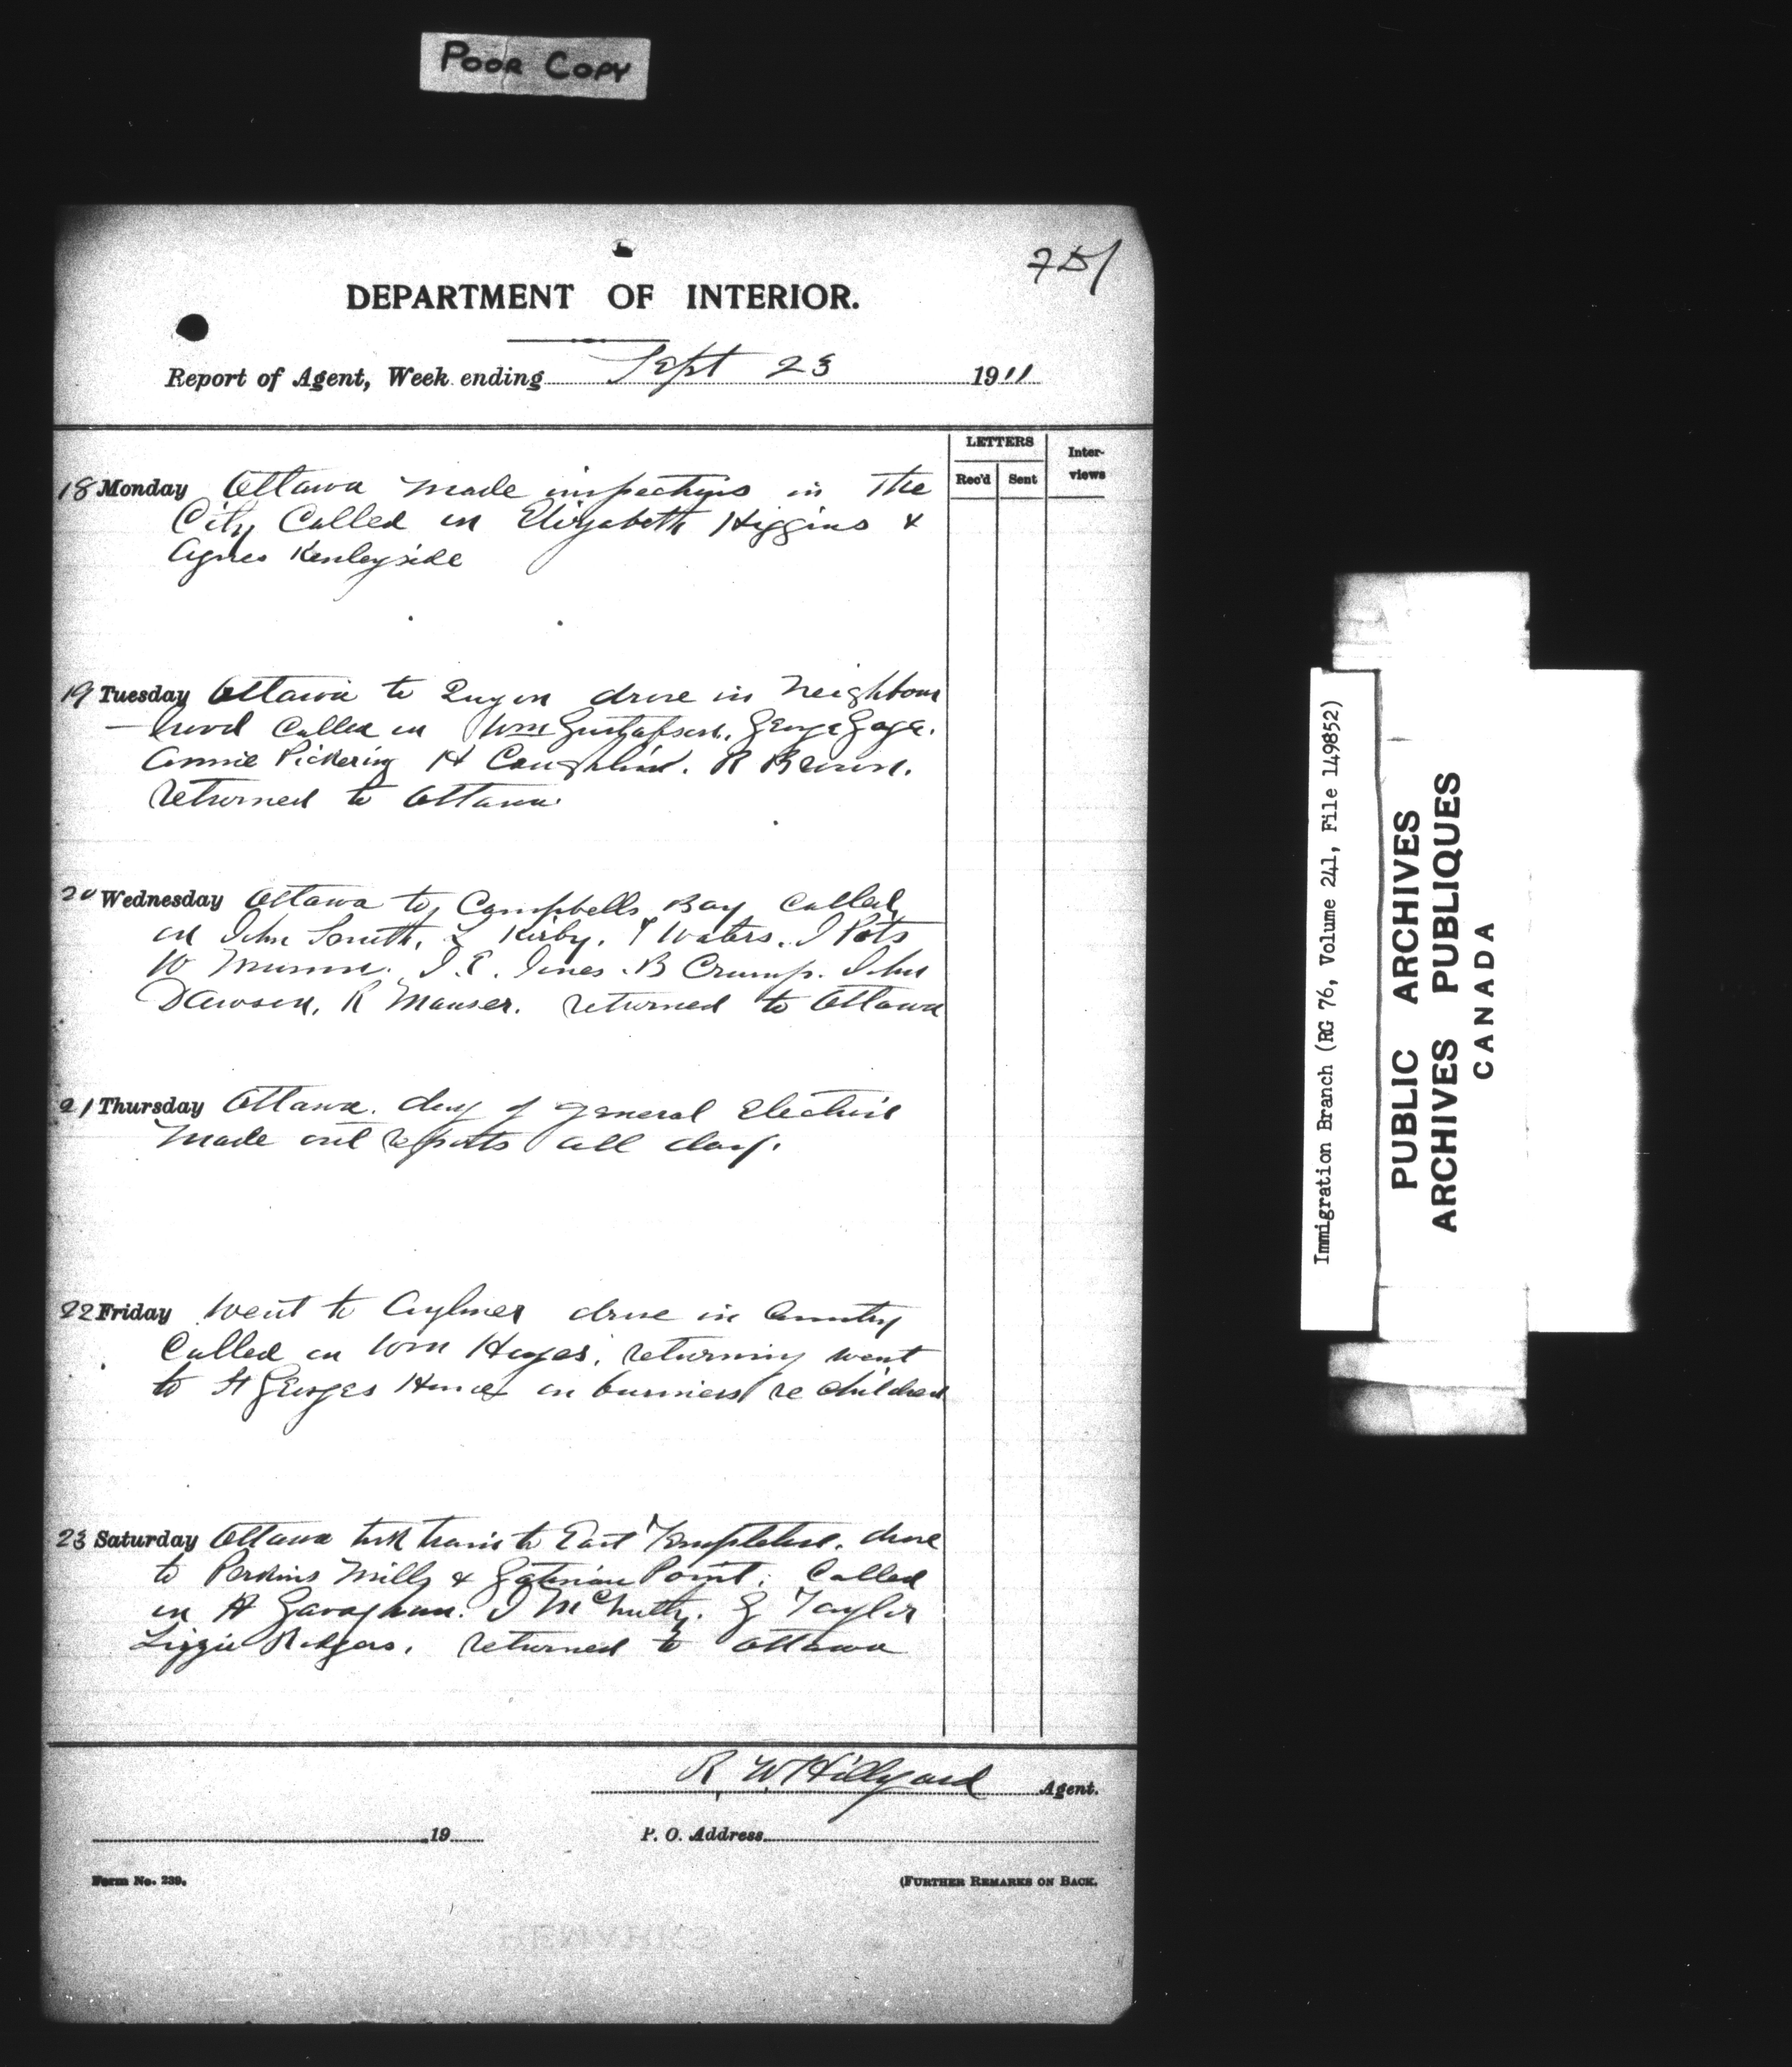 POOR COPY
751
DEPARTMENT OF INTERIOR.
Report of Agent, Week ending Sept 23 1911
LETTERS
Rec'd Sent Inter-views
18 Monday Ottawa made inspections in the
City Called on Elizabeth Higgins &
Agnes Kenleyside
19 Tuesday Ottawa to Quyon drove in neighbour
-hood called on Wm Gustafson. George Gage.
Annie Pickering H Coughlin. R Brown.
returned to Ottawa
20 Wednesday Ottawa to Campbells Bay called
on John Smith, L Kirby. T Waters. J Pots
W Munn. J. E. Jones. B Crump. John
Dawson. R Manser. returned to Ottawa
21 Thursday Ottawa. day of general election
made out reports all day.
22 Friday Went to Aylmer drove in Country
Called on Wm Hayes. returning went
to St Georges Home on business re children
23 Saturday Ottawa took train to East Templeton. drove
to Perkins Mills & Gatineau Point. Called
on A Gavaghan. J McNulty. G Taylor
Lizzie Rodgers. returned to Ottawa
R W Hillyard Agent.
19 P. O. Address
Form No. 239.
(FURTHER REMARKS ON BACK.
Immigration Branch (RG 76, Volume 241, File 149852)
PUBLIC ARCHIVES
ARCHIVES PUBLIQUES
CANADA